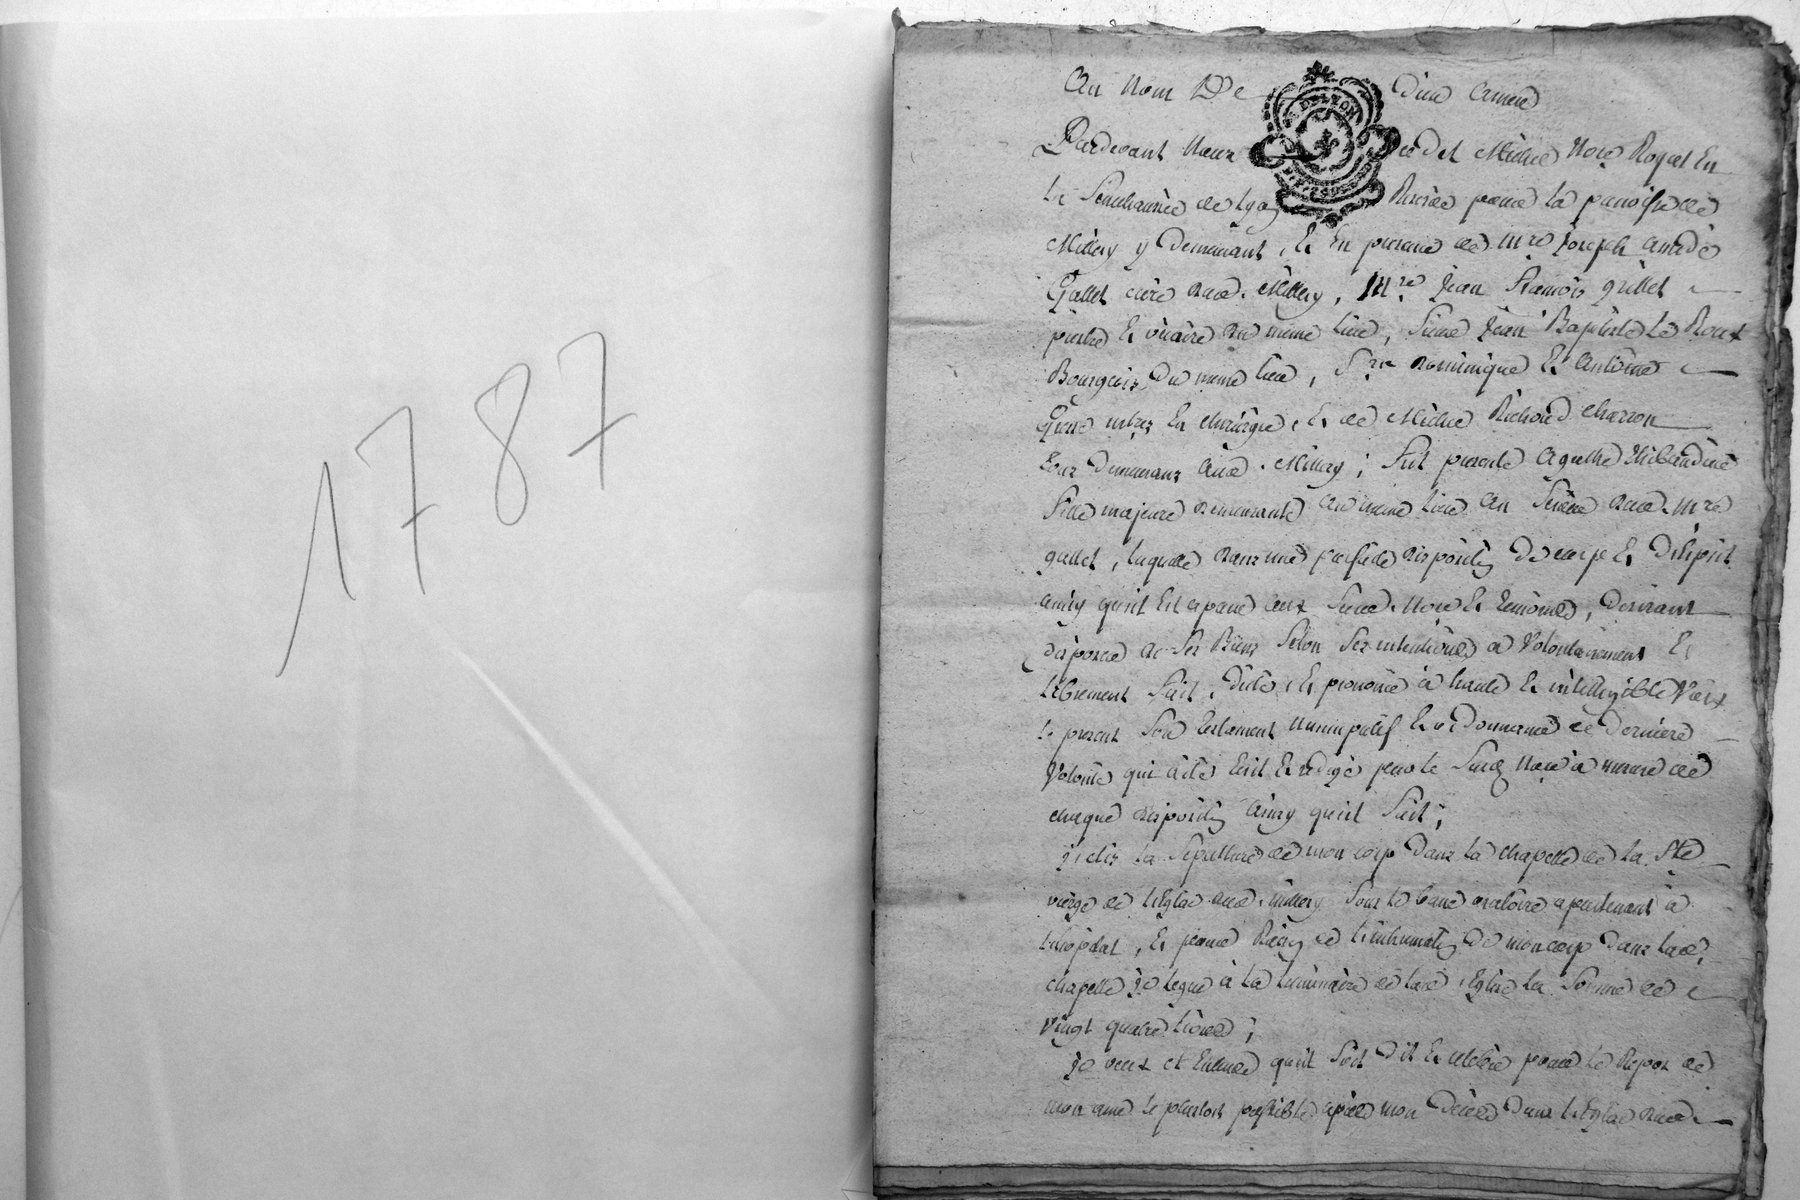 1787
Au Nom De Dieu Amen
Pardevant Nous Michel Nore Royal En
la Senechaussée de Lyon Reservé pour la parroisse de
Millery y Demeurant, Et En presence de Mre Joseph Amedé
Gallet curé dud. Millery, Mre Jean François grillet
prestre Et vicaire du meme lieu, Sieur Jean Baptiste Le Roux
Bourgeois Du meme lieu, Srs Dominique Et Antoine
mtres En chirurgie, Et de Michel Richoud charron
tous Demeurans aud. Millery; Fut presente Agathe Thibaudier
Fille majeure demeurante au meme lieu au Service dud. Mre
gallet, laquelle dans une parfaite disposition De corps Et D'esprit
ainsy qu'il Est aparu aux Susd. Nore Et temoins, Desirant
disposer de Ses Biens Selon Ses intentions a Volontairement Et
Librement Fait, Dicté, Et prononcé à haute Et intelligible Voix
le present Son testament nuncupatif Et ordonnance de Derniere
Volonté qui a été Ecrit Et redigé par le Susd. Nore à mesure de
chaque disposition Ainsy qu'il Suit;
J'elis la Sepulture de mon corps Dans la chapelle de la Ste
vierge de l'Eglise dud. Millery Sous le banc oratoire apartenant à
l'hopital, Et pour Raison de l'inhumation De mon corps Dans lad.
chapelle je legue à la luminaire de lad. Eglise la Somme de
vingt quatre livres;
Je veux et Entends qu'il Soit Dit Et celebré pour le Repos de
mon ame le plustost possible après mon Décès Dans l'Eglise dud.